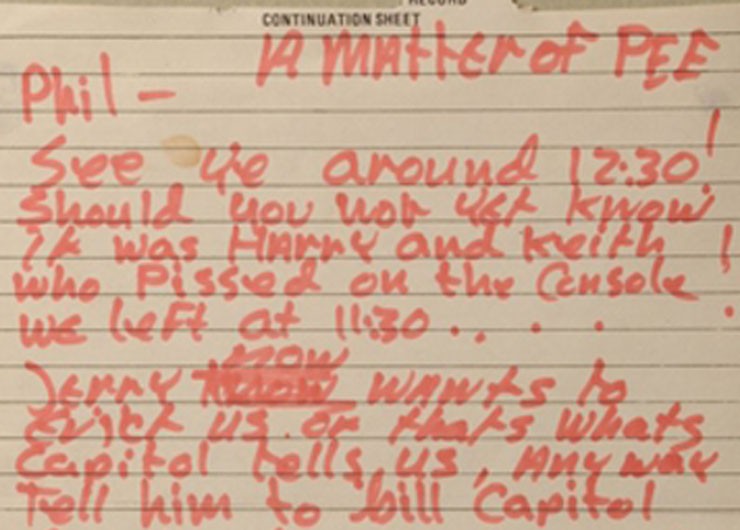 RECORD
CONTINUATION SHEET
A MAtter of PEE
Phil —
See ye around 12:30!
Should you not yet know
it was HArry and Keith
who Pissed on the Console!
we left at 11:30 . . . .
Jerry now wants to
Evict us. or thats whats
Capitol tells us, Anyway
Tell him to bill Capitol